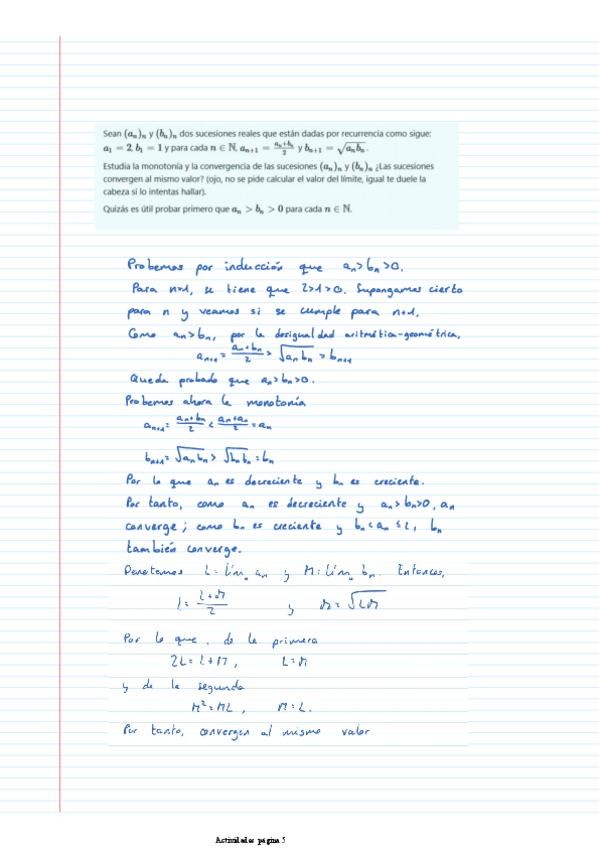 Sean (aₙ)ₙ y (bₙ)ₙ dos sucesiones reales que están dadas por recurrencia como sigue:
a₁ = 2, b₁ = 1 y para cada n ∈ ℕ, aₙ₊₁ = (aₙ+bₙ)/2 y bₙ₊₁ = √(aₙbₙ).
Estudia la monotonía y la convergencia de las sucesiones (aₙ)ₙ y (bₙ)ₙ ¿Las sucesiones
convergen al mismo valor? (ojo, no se pide calcular el valor del límite, igual te duele la
cabeza si lo intentas hallar).
Quizás es útil probar primero que aₙ > bₙ > 0 para cada n ∈ ℕ.
Probemos por inducción que aₙ>bₙ>0.
Para n=1, se tiene que 2>1>0. Supongamos cierto
para n y veamos si se cumple para n+1.
Como aₙ>bₙ, por la desigualdad aritmética-geométrica,
aₙ₊₁ = (aₙ+bₙ)/2 > √(aₙbₙ) = bₙ₊₁
Queda probado que aₙ>bₙ>0.
Probemos ahora la monotonía
aₙ₊₁ = (aₙ+bₙ)/2 < (aₙ+aₙ)/2 = aₙ
bₙ₊₁ = √(aₙbₙ) > √(bₙbₙ) = bₙ
Por lo que aₙ es decreciente y bₙ es creciente.
Por tanto, como aₙ es decreciente y aₙ>bₙ>0, aₙ
converge; como bₙ es creciente y bₙ<aₙ≤2, bₙ
también converge.
Denotemos L = límₙ aₙ y M = límₙ bₙ. Entonces,
L = (L+M)/2 y M = √(LM)
Por lo que, de la primera
2L = L+M, L=M
y de la segunda
M² = ML, M=L.
Por tanto, convergen al mismo valor
Actividades página 5